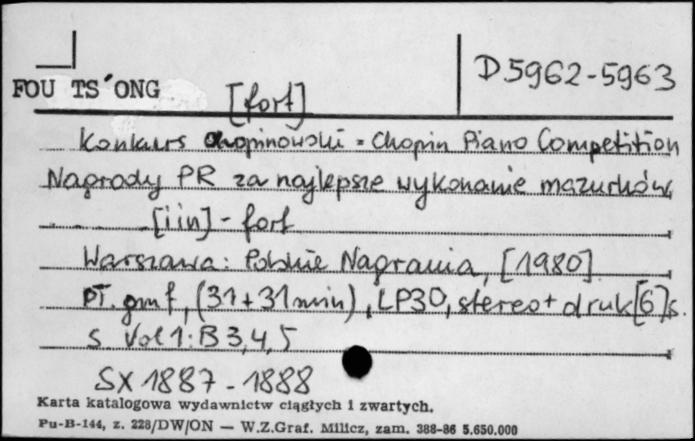 D 5962-5963
FOU TS´ONG
[fort]
Konkurs Chopinowski = Chopin Piano Competition
Nagrody PR za najlepsze wykonanie mazurków
[i in] - fort
Warszawa: Polskie Nagrania, [1980]
pł. gmf, (31 + 31 min), LP30, stereo + druk [6] s.
s Vol 1: B 3, 4, 5
SX 1887 - 1888
Karta katalogowa wydawnictw ciągłych i zwartych.
Pu-B-144, z. 228/DW/ON — W.Z.Graf. Milicz, zam. 388-86 5.650.000